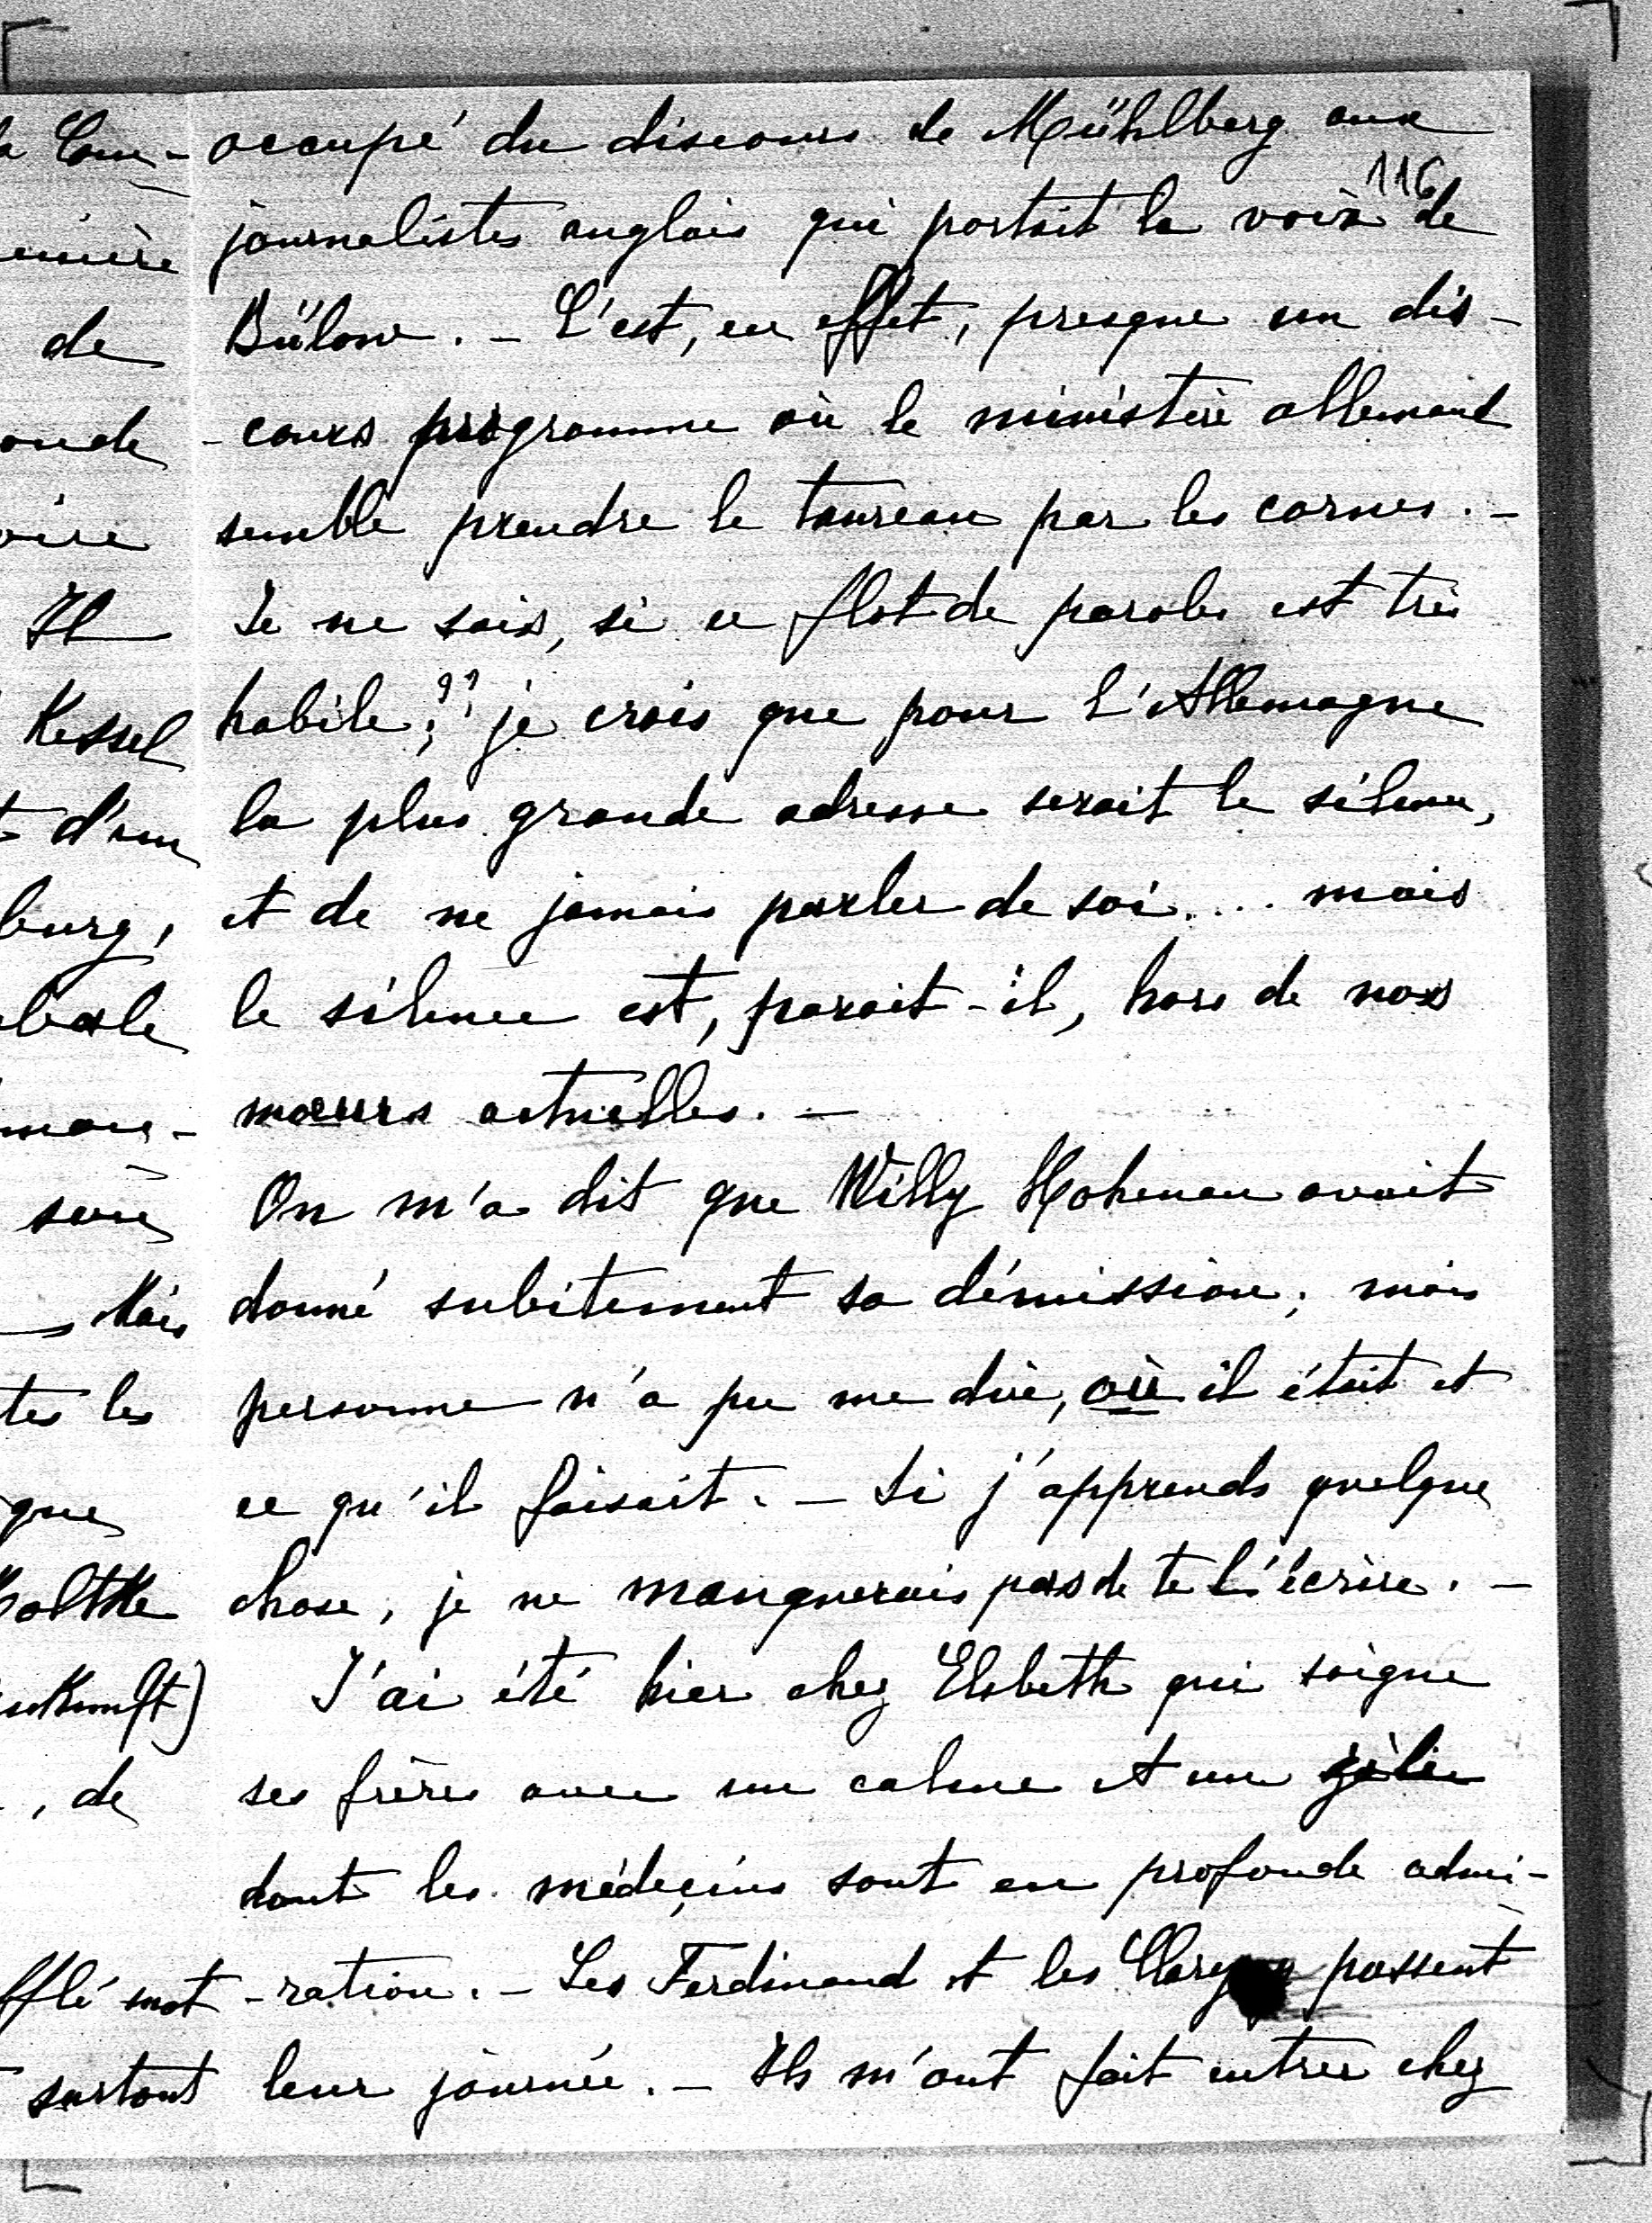 116
occupé du discours de Mühlberg aux
journalistes anglais qui portait la voix de
Bülow. - C'est, en effet, presque un dis-
-cours programme où le ministère allemand
semble prendre le taureau par les cornes. -
Je ne sais, si ce flot de paroles est très
habile; ?? je crois que pour l'Allemagne
la plus grande adresse serait le silence,
et de ne jamais parler de soi.... mais
le silence est, parait-il, hors de nos
moeurs actuelles. -
On m'a dit que Willy Hohenau avait
donné subitement sa démission; mais
personne n'a pu me dire, où il était et
ce qu'il faisait. - Si j'apprends quelque
chose, je ne manquerais pas de te l'écrire. -
J'ai été hier chez Elsbeth qui soigne
ses frères avec un calme et un zèle
dont les médecins sont en profonde admi-
-ration. - Les Ferdinand et les Clary y passent
leur journée. - Ils m'ont fait entrer chez
de
Il
Kessel
d'un
burg,
Mais
les
que
de
surtout